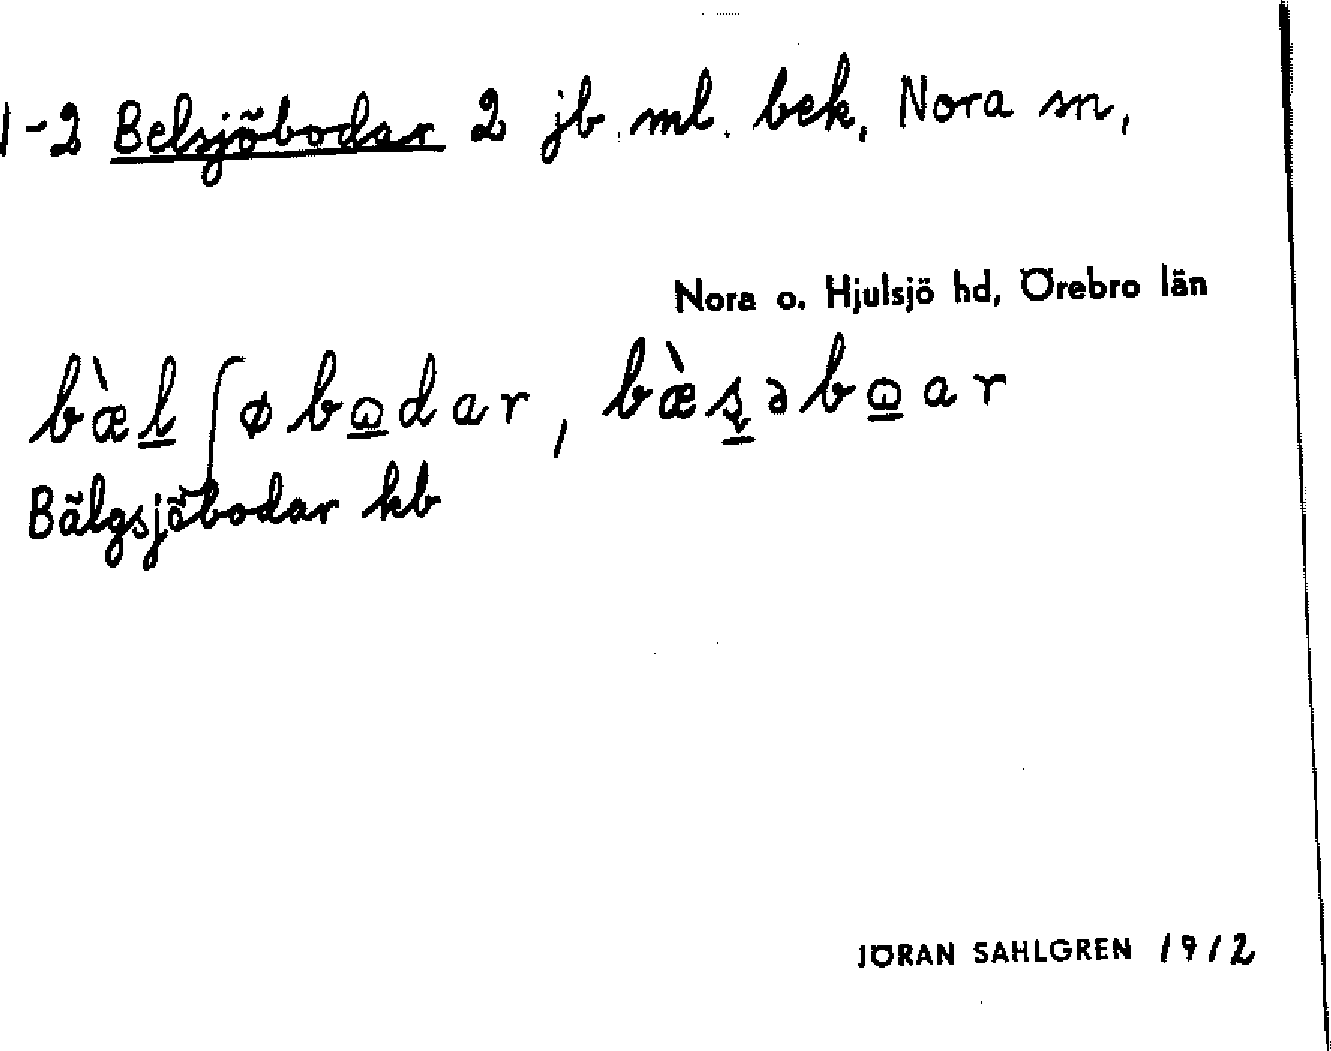 1-2 Belsjöbodar 2 jb. ml. bek, Nora sn,
Nora o. Hjulsjö hd, Örebro län
bæ̀l̲ʃøbω̲dar, bæ̀ş̲əbω̲ar
Bälgsjöbodar kb
JÖRAN SAHLGREN 1912